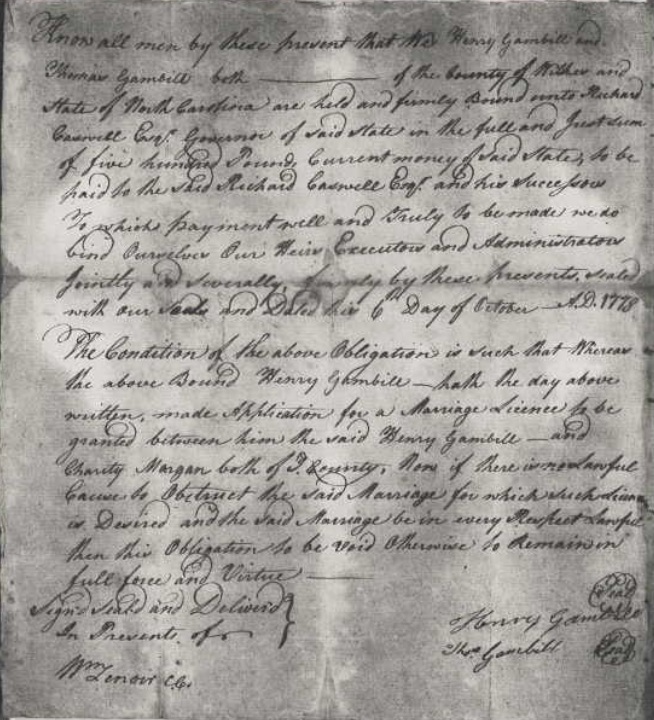 Know all men by these present that We Henry Gambill and
Thomas Gambill both of the County of Wilkes and
State of North Carolina are held and firmly Bound unto Richard
Caswell Esqr. Governor of said State in the full and Just sum
of five hundred Pounds Current money of said State, to be
paid to the said Richard Caswell Esqr. and his Successors
To which payment well and Truly to be made we do
bind Ourselves Our Heirs Executors and Administrators
Jointly and Severally, firmly by these presents, sealed
with our Seals and Dated this 6th Day of October A.D. 1778
The Condition of the above Obligation is such that Whereas
the above Bound Henry Gambill hath the day above
written, made Application for a Marriage Licence to be
granted between him the said Henry Gambill and
Charity Morgan both of sd. County, Now if there is no Lawful
Cause to Obstruct the said Marriage for which such Licence
is Desired and the said Marriage be in every Respect Lawful
then this Obligation to be void Otherwise to Remain in
full force and Virtue
Signd seald and Deliverd
In Presents of
Henry Gambill Seal
Thos. Gambill Seal
Wm Lenoir CC.